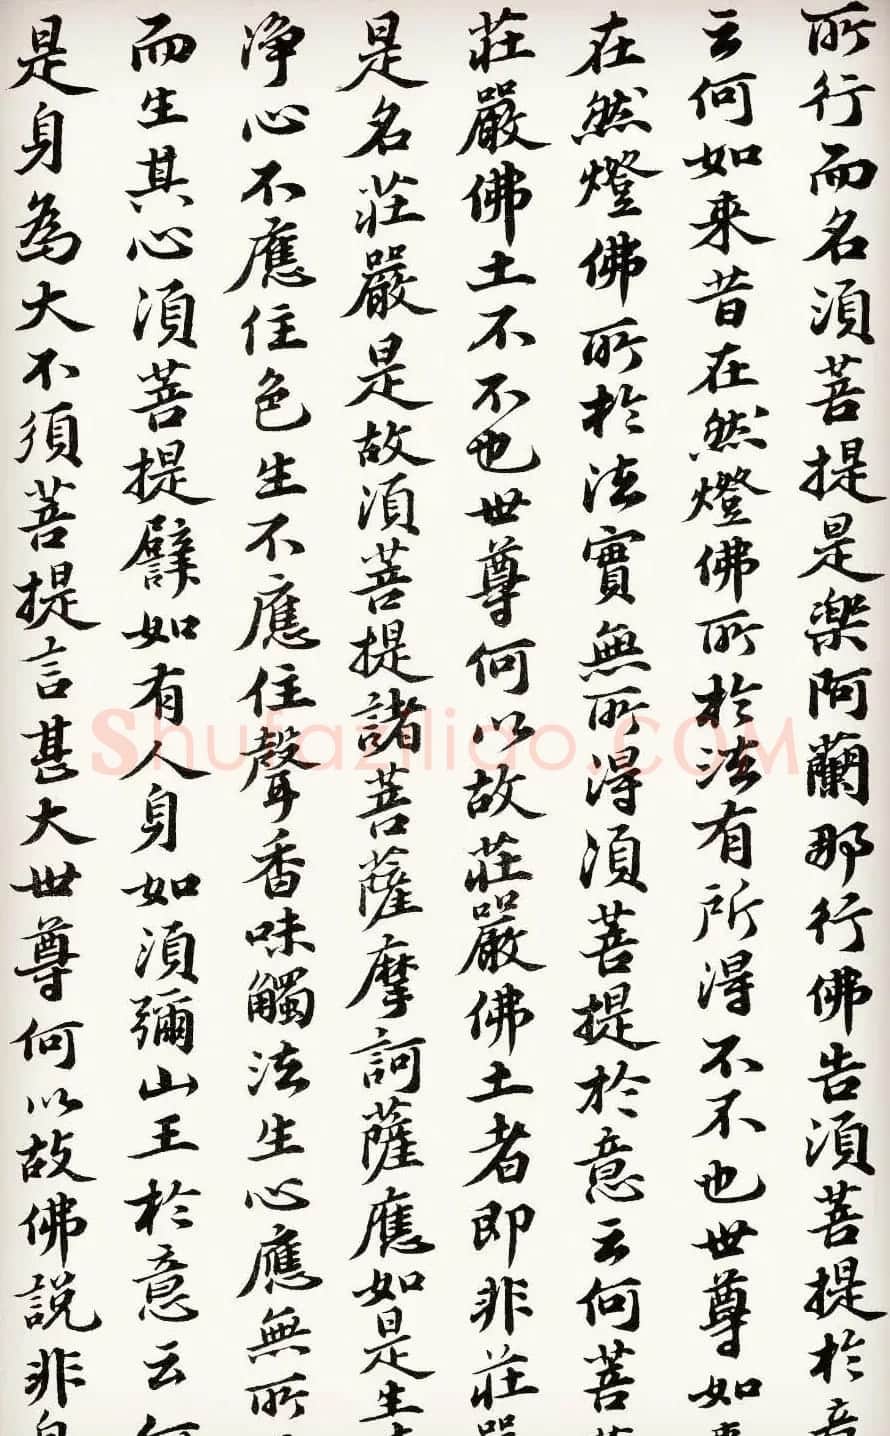 所行而名須菩提是樂阿蘭那行佛告須菩提於意
云何如来昔在然燈佛所於法有所得不不也世尊如
在然燈佛所於法實無所得須菩提於意云何菩
莊嚴佛土不不也世尊何以故莊嚴佛土者即非莊
是名莊嚴是故須菩提諸菩薩摩訶薩應如是生
净心不應住色生不應住聲香味觸法生心應無所
而生其心須菩提譬如有人身如須彌山王於意云何
是身為大不須菩提言甚大世尊何以故佛説非身
Shufaziliao.COM